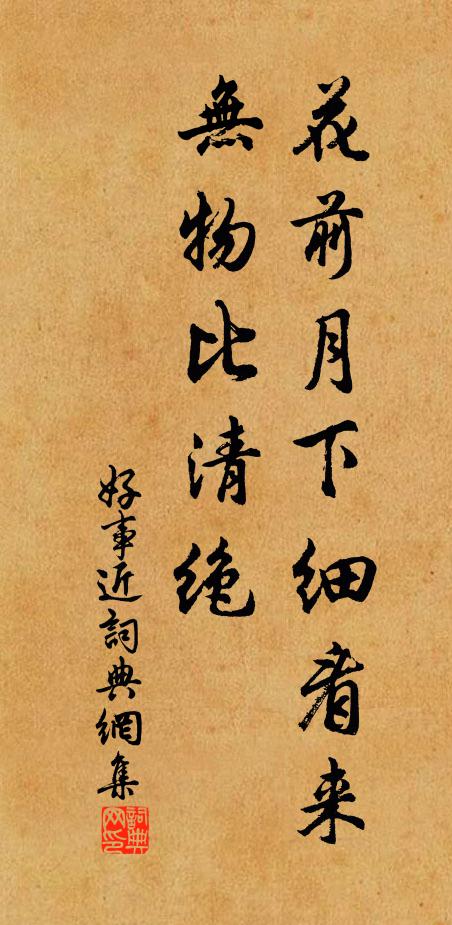 花前月下细看来
無物比清絶
好事近詞典網集
詞典网印